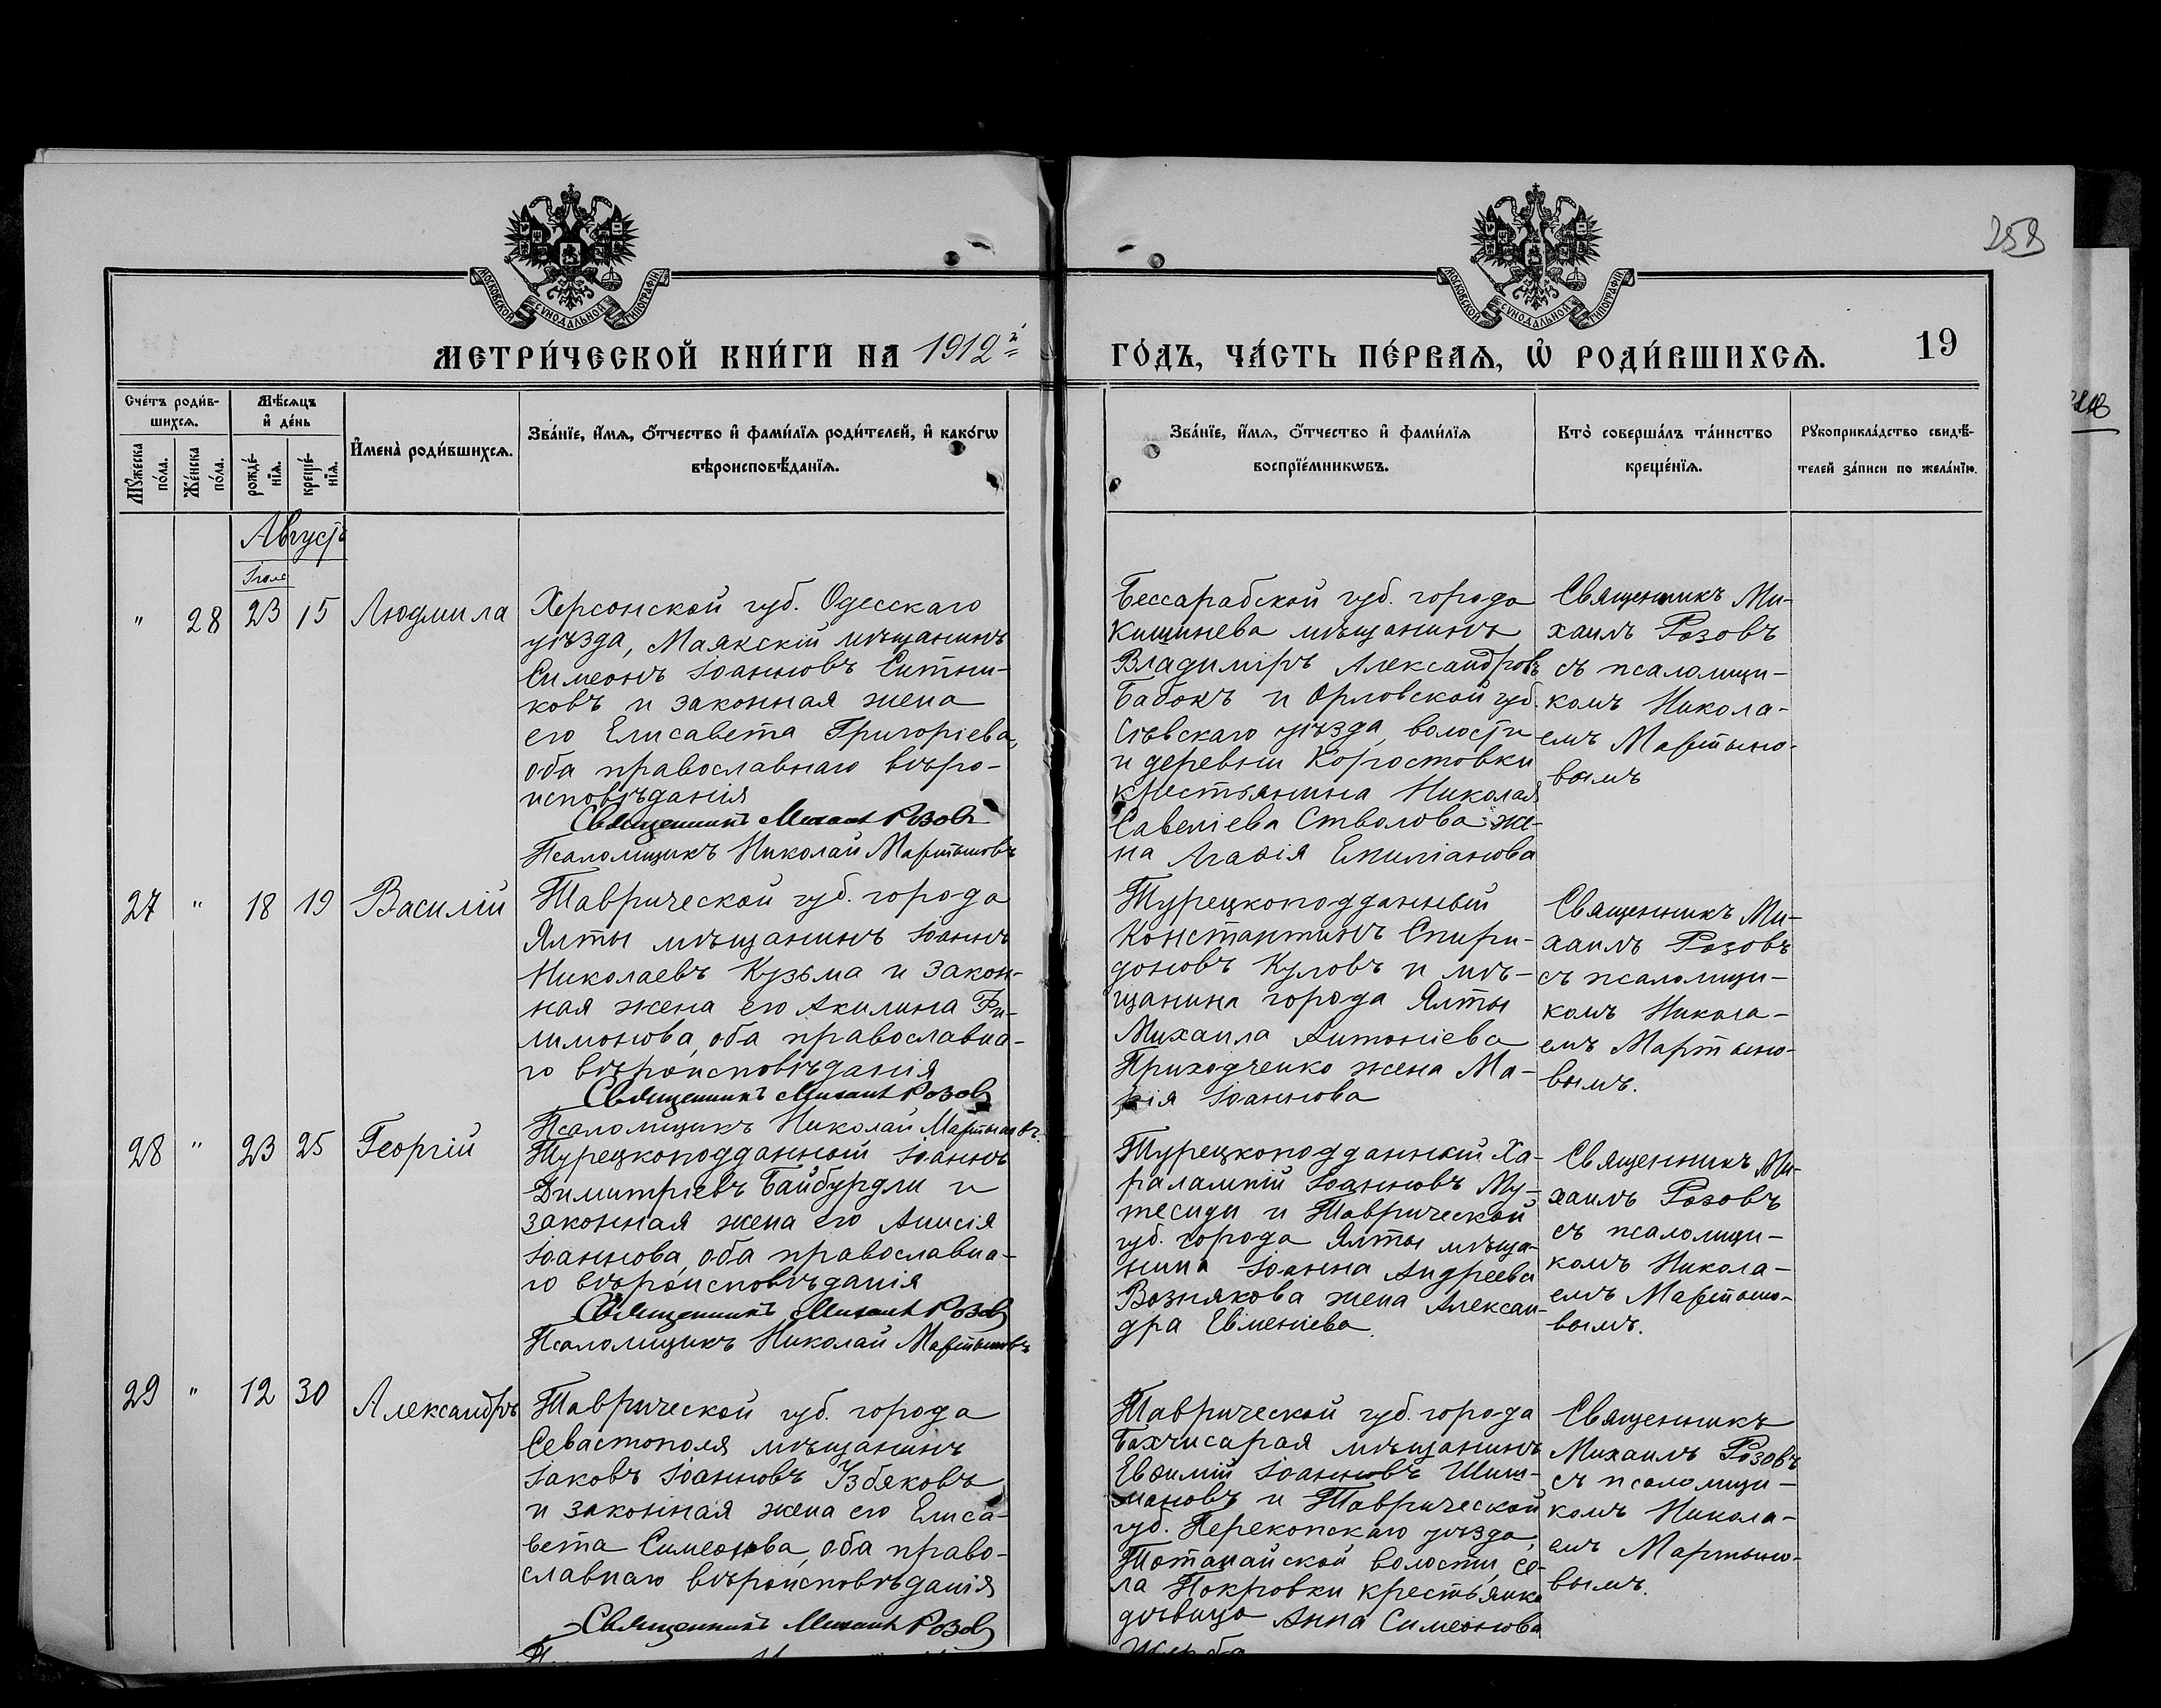 258
МОСКОВСКОЙ СУНОДАЛЬНОЙ ТИПОГРАФІИ
МОСКОВСКОЙ СУНОДАЛЬНОЙ ТИПОГРАФІИ
МЕТРИ́ЧЕСКОЙ КНИ́ГИ НА 1912й
ГО́ДЪ, ЧА́СТЬ ПЕ́РВАЯ, Ѡ҆ РОДИ́ВШИХСЯ.
19
Сче́тъ роди́в-
шихся.
Мꙋжеска по́ла.
Же́нска по́ла.
Мѣ́сяцъ и҆ де́нь
рожде́-нїя.
креще́-нїя.
И҆мена̀ роди́вшихся.
Зва́нїе, и҆́мя, ѻ҆́тчество и҆ фами́лїя роди́телей, и҆ како́гѡ
вѣроисповѣ́данїя.
Зва́нїе, и҆́мя, ѻ҆́тчество и҆ фами́лїя
воспрїе́мникѡвъ.
Кто̀ соверша́лъ та́инство
креще́нїя.
Рꙋкоприкла́дство свидѣ́-
телей за́писи по жела́нїю.
Августъ
Іюля
" 28 23 15 Людмила
Херсонской губ. Одесскаго
уѣзда, Маякскій мѣщанинъ
Симеонъ Іоанновъ Ситни-
ковъ и законная жена
его Елисавета Григоріева,
оба православнаго вѣро-
исповѣданія
Священникъ Михаилъ Розовъ
Псаломщикъ Николай Мартыновъ
Бессарабской губ. города
Кишинева мѣщанинъ
Владиміръ Александровъ
Бабокъ и Орловской губ.
Сѣвскаго уѣзда, волости
и деревни Коростовки
крестьянина Николая
Савеліева Стволова же-
на Агаѳія Емиліанова
Священникъ Ми-
хаилъ Розовъ
съ псаломщи-
комъ Никола-
емъ Мартыно-
вымъ
27 " 18 19 Василій
Таврической губ. города
Ялты мѣщанинъ Іоаннъ
Николаевъ Кузьма и закон-
ная жена его Акилина Фи-
лимонова, оба православна-
го вѣроисповѣданія
Священникъ Михаилъ Розовъ
Псаломщикъ Николай Мартыновъ.
Турецкоподданный
Константинъ Спири-
доновъ Куловъ и мѣ-
щанина города Ялты
Михаила Антоніева
Приходченко жена Ма-
рія Іоаннова
Священникъ Ми-
хаилъ Розовъ
съ псаломщи-
комъ Никола-
емъ Мартыно-
вымъ.
28 " 23 25 Георгій
Турецкоподданный Іоаннъ
Димитріевъ Байбурдли и
законная жена его Анисія
Іоаннова, оба православна-
го вѣроисповѣданія
Священникъ Михаилъ Розовъ
Псаломщикъ Николай Мартыновъ
Турецкоподданный Ха-
ралампій Іоанновъ Му-
тесиди и Таврической
губ. города Ялты мѣща-
нина Іоанна Андреева
Вознякова жена Алексан-
дра Евменіева.
Священникъ Ми-
хаилъ Розовъ
съ псаломщи-
комъ Никола-
емъ Мартыно-
вымъ.
29 " 12 30 Александръ
Таврической губ. города
Севастополя мѣщанинъ
Іаковъ Іоанновъ Узбяковъ
и законная жена его Елиса-
вета Симеонова, оба право-
славнаго вѣроисповѣданія
Священникъ Михаилъ Розовъ
Таврической губ. города
Бахчисарая мѣщанинъ
Евѳимій Іоанновъ Шиш-
мановъ и Таврической
губ. Перекопскаго уѣзда,
Тотанайской волости, се-
ла Покровки крестьянка
дѣвица Анна Симеонова
Священникъ
Михаилъ Розовъ
съ псаломщи-
комъ Никола-
емъ Мартыно-
вымъ.